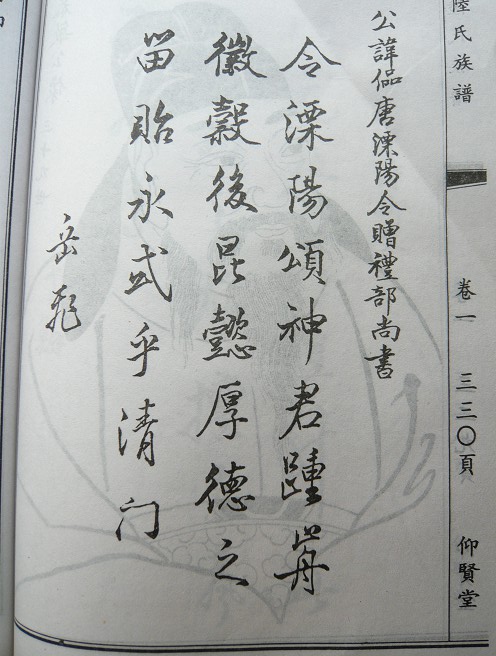 陸氏族譜
卷一
三三〇頁
仰賢堂
公諱偘唐溧陽令贈禮部尚書
令溧陽頌神君踵
徽縠後昆懿厚德之
留貽永式乎清门
岳飛